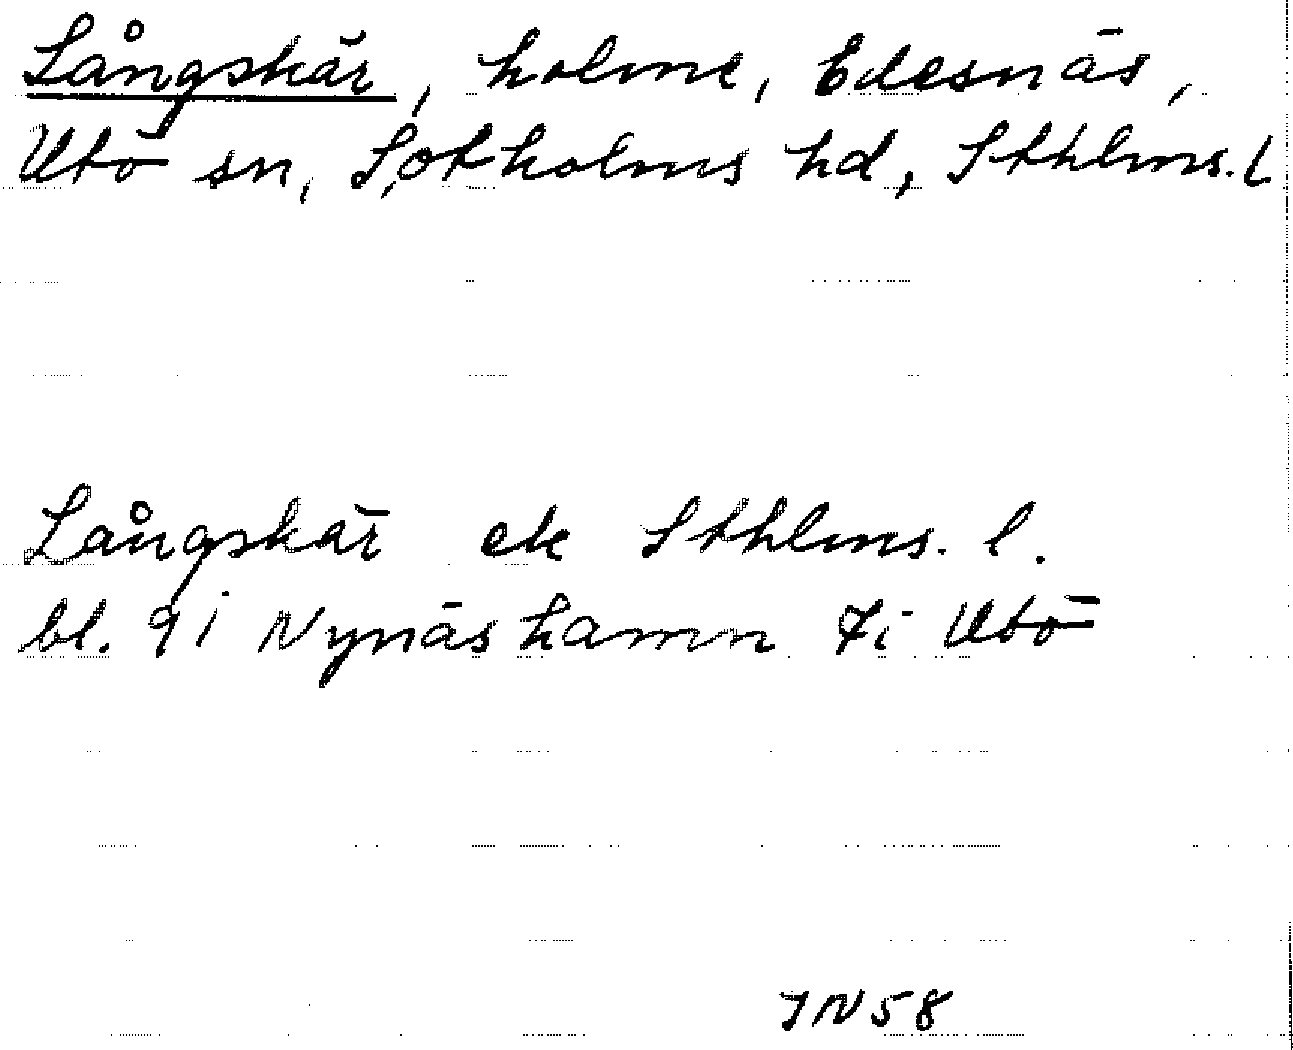 Långskär, holme, Edesnäs,
Utö sn, Sotholms hd, Sthlms.l
Långskär ek Sthlms. l.
bl. 9i Nynäshamn 7i Utö
JN58